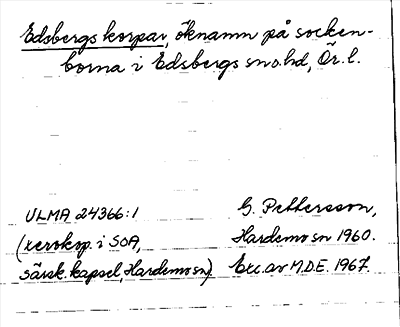 Edsbergs korpar, öknamn på socken-
borna i Edsbergs sn o. hd, Ör. l.
ULMA 24366:1
G. Pettersson,
(xerokop. i SOA,
Hardemo sn 1960.
särsk. kapsel, Hardemo sn)
Exc. av M.D.E. 1967.